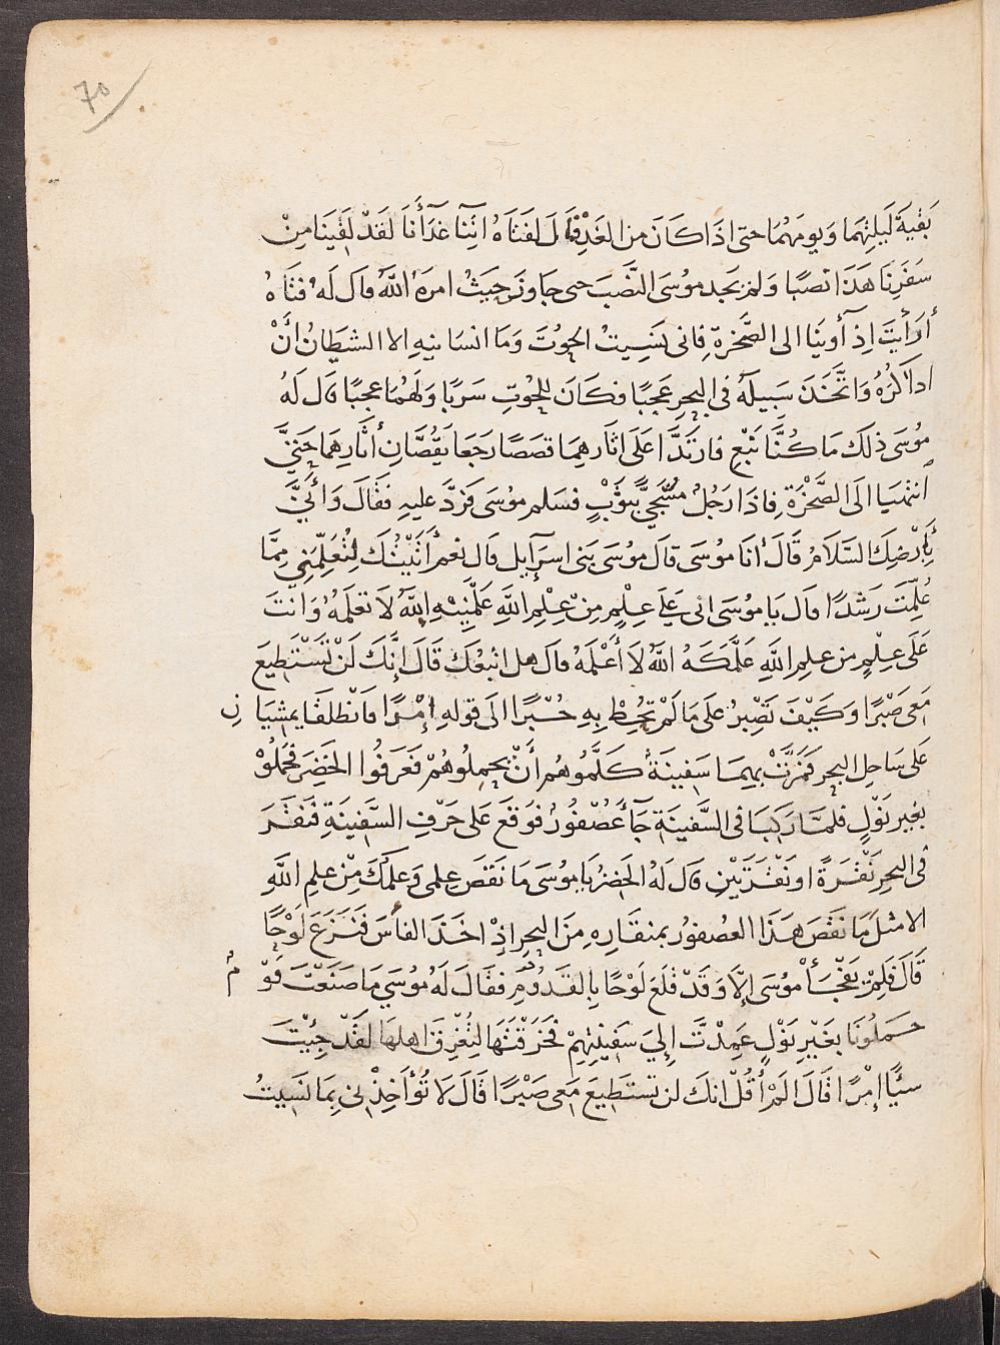 70
بَقِيَةَ لَيلتِهُمَا وَيومَهُمَا حتى اذَا كَانَ من الغَدِ قَالَ لفَتَاهُ اتِنَا غَدَآأَنَا لَقَدْ لَقِينَا مِنْ
سَفَرِنَا هَذَا نصبًا وَلم يَجد موُسَى النَّصَبَ حتى جَاوَزَ حَيثُ امرَهُ اللَّهُ قال لَهُ فتَاهُ
أَرَأَيتَ اِذ أَوينَا الى الصَّخرَةِ فِانى نَسِيتُ الحوُتَ وَمَا انسَانيهِ الا الشيطَانُ أَنْ
اذاكُرُهُ وَاتَّخَذَ سَبِيلَهُ فى البحرِ عَجَبًا فكَانَ لِلحُوتِ سَرَبًا وَلَهُمَا عجبًا قال لَهُ
مُوسَى ذلكَ مَا كُنَّا نَبْغِ فارتَدَّا عَلَى اثَارهِمَا قصَصًا رَجَعَا يَقُصَّانِ أَثَارهِمَا حَتىَّ
انتهَيَا الَى الصَّخْرَةِ فِاذَا رَجُلٌ مُسَجىًّ بِثَوْبٍ فسَلم موُسَى فَردَّ عليهِ فقَالَ وَأَنىَّ
بِأَرْضِكَ السَّلَامُ قَالَ أنَا موُسَى قال موُسَى بَنى اسرَآيل قال نعم أَتَيْتُكَ لِتُعَلِّمَنِي مِمَّا
عُلِّمتَ رَشدًا قال يَا موُسَى انى عَلَى عِلْمٍ مِنْ عِلْمِ اللَّهِ عَلَّمَنِيْهِ اللَّهُ لَا تَعلَمَهُ وَانتَ
عَلَى عِلْمٍ من علِمِ اللَّهِ عَلَّمَكَهُ اللَّهُ لَا أَعْلَمَهُ قال هل اتبعُكَ قَالَ إِنَّكَ لَنْ تَسْتَطِيَعَ
مَعى صَبْرًا وَكَيْفَ تَصْبِرُ عَلى مَا لَمْ تُحِطْ بِهِ خُبْرًا الَى قولهِ إِمْرًا فَانْطلقَا يمشِيَانِ
عَلى سَاحلِ البحرِ فَمَرَّتْ بهِمَا سَفِينَةٌ كَلَّمُوهُم أَنْ يحمِلُوهُمْ فَعَرَفُوا الخَضِرَ فحَملُوْ
بغير نَوْلٍ فلمَّا رَكبَا فى السَّفينَةِ جَآءَ عُصْفُورٌ فوَقعَ عَلى حَرْفِ السَّفِينَةِ فَنَقَرَ
فى البحرِ نَقْرَةً او نَقْرَتَيْنِ قال لَهُ الخَضِرُ يَا موُسَى مَا نَقَصَ عِلمى وَعلمُكَ مِنْ علِمِ اللَّهِ
الا مثلَ مَا نقَصَ هَذَا العصُفوُر بمنقَارِهِ مِنَ البحرِ اِذْ اخَذَ الفاْسَ فَنَزَعَ لَوْحًا
قَالَ فَلِمْ يَفْجَأْ موُسَى إِلَّا وَقَدْ قَلَعَ لَوْحًا بِالقَدوُمِ فقَالَ لَهُ موُسَي مَا صَنَعْتَ قَوْمٌ
حَملُونَا بغَيْرِ نَوْلٍ عَمِدْتَ إِلىَ سَفِينتِهِمْ فَخَرَقْتَهَا لِتُغْرِقَ اهلهَا لَقَدْ جِئْتَ
شئًا إِمْرًا قَالَ الَمْ أَقُلْ انكَ لن تستَطِيعَ مَعى صَبْرًا قَالَ لَا تُؤَاخِذْنِى بِمَا نَسِيتُ